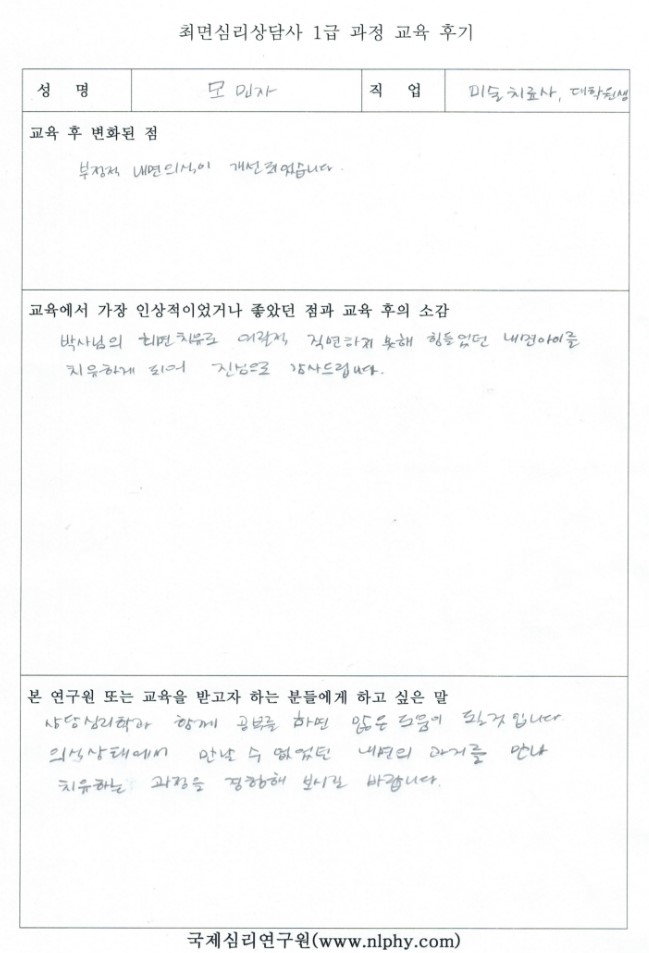 최면심리상담사 1급 과정 교육 후기
성 명 모민자 직 업 미술치료사, 대학원생
교육 후 변화된 점
부정적 내면의식이 개선되었습니다.
교육에서 가장 인상적이었거나 좋았던 점과 교육 후의 소감
박사님의 최면치유로 직면하지 못해 힘들었던 내면아이를
치유하게 되어 진심으로 감사드립니다.
본 연구원 또는 교육을 받고자 하는 분들에게 하고 싶은 말
상담심리학과 함께 공부를 하면 많은 도움이 될것입니다
의식상태에서 만날 수 없었던 내면의 과거를 만나
치유하는 과정을 경험해 보시길 바랍니다.
국제심리연구원(www.nlphy.com)